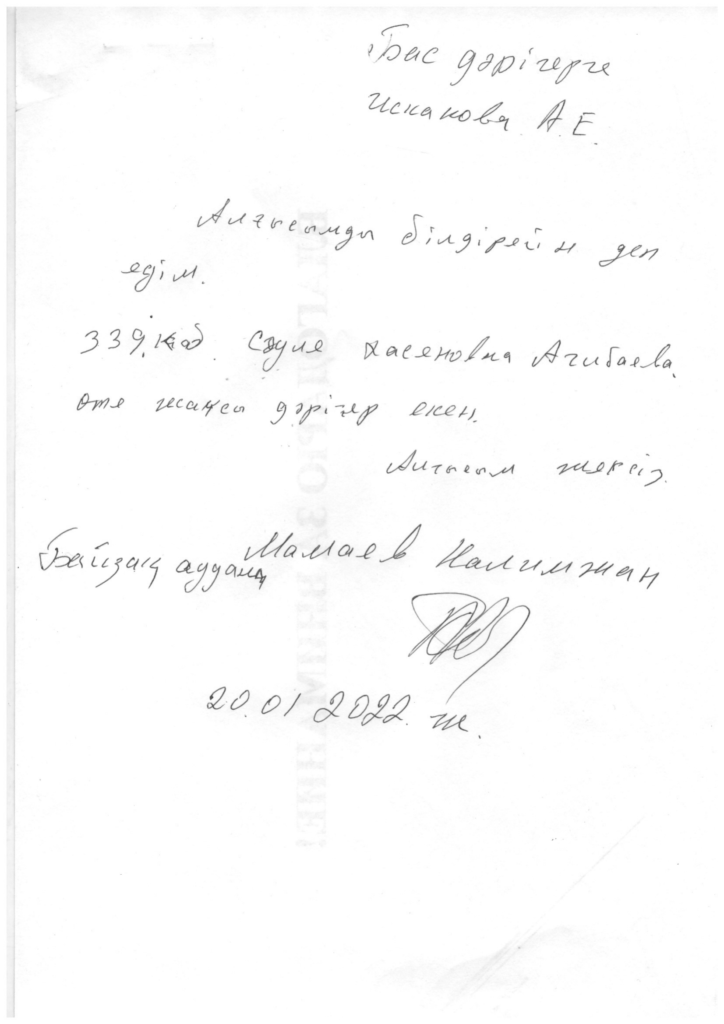 Бас дәрігерге
Искакова А.Е.
Алғысымды білдірейін деп
едім.
339.каб. Сәуле Хасеновна Агибаева.
өте жақсы дәрігер екен.
Алғысым шексіз.
Байзақ ауданы Мамаев Калимжан
20.01 2022. ж.
БЛАГОДАРЮ ЗА ВНИМАНИЕ!